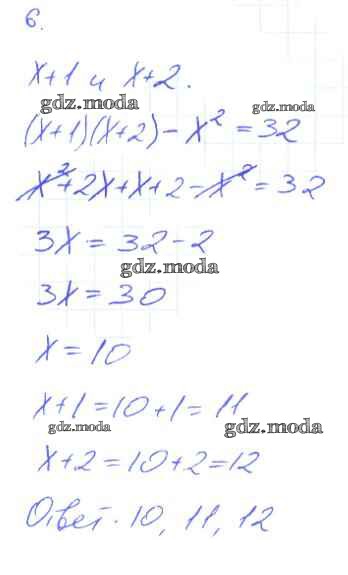 6.
x+1 и x+2.
gdz.moda
gdz.moda
(x+1)(x+2)-x²=32
x²+2x+x+2-x²=32
3x=32-2
gdz.moda
3x=30
x=10
x+1=10+1=11
gdz.moda gdz.moda
x+2=10+2=12
Ответ. 10, 11, 12